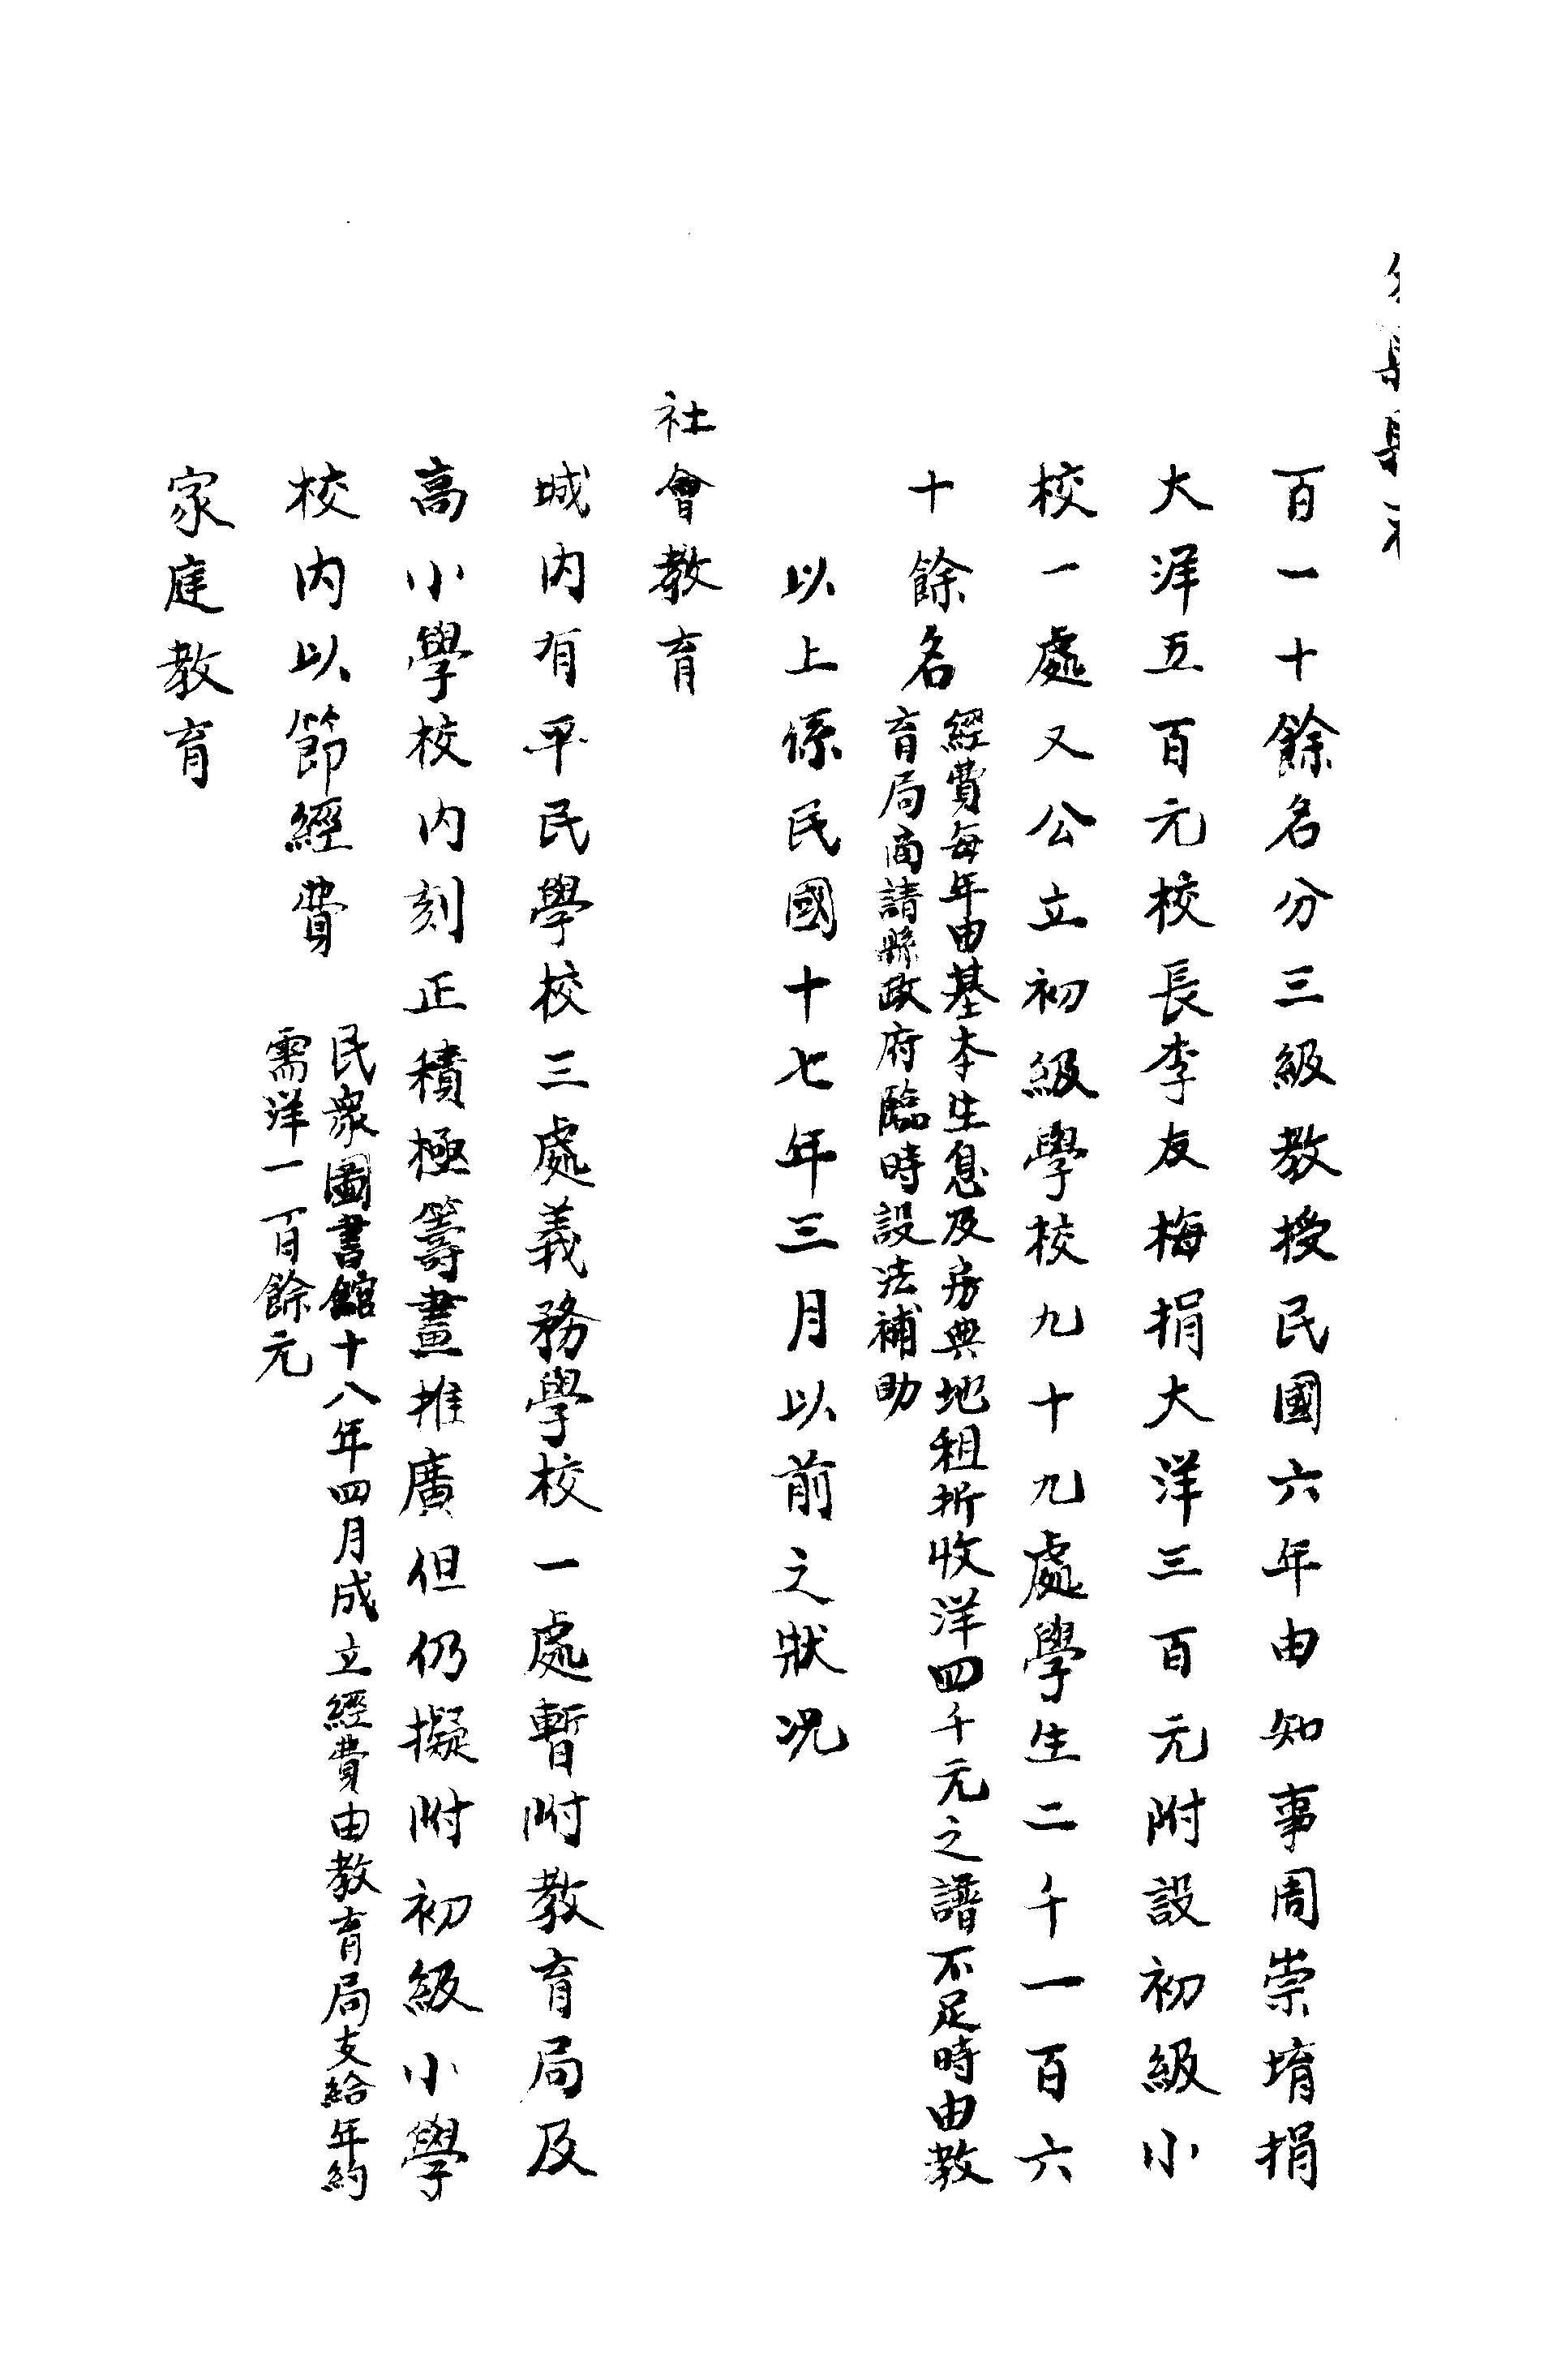 百一十餘名分三級教授民國六年由知事周崇堉捐
大洋五百元校長李友梅捐大洋三百元附設初級小
校一處又公立初級學校九十九處學生二千一百六
十餘名
經費每年由基本生息及房典地租折收洋四千元之譜不足時由教
育局商請縣政府臨時設法補助
以上係民國十七年三月以前之狀況
社會教育
城內有平民學校三處義務學校一處暫附教育局及
高小學校內刻正積極籌畫推廣但仍擬附初級小學
校內以節經費
民眾圖書館十八年四月成立經費由教育局支給年約
需洋一百餘元
家庭教育